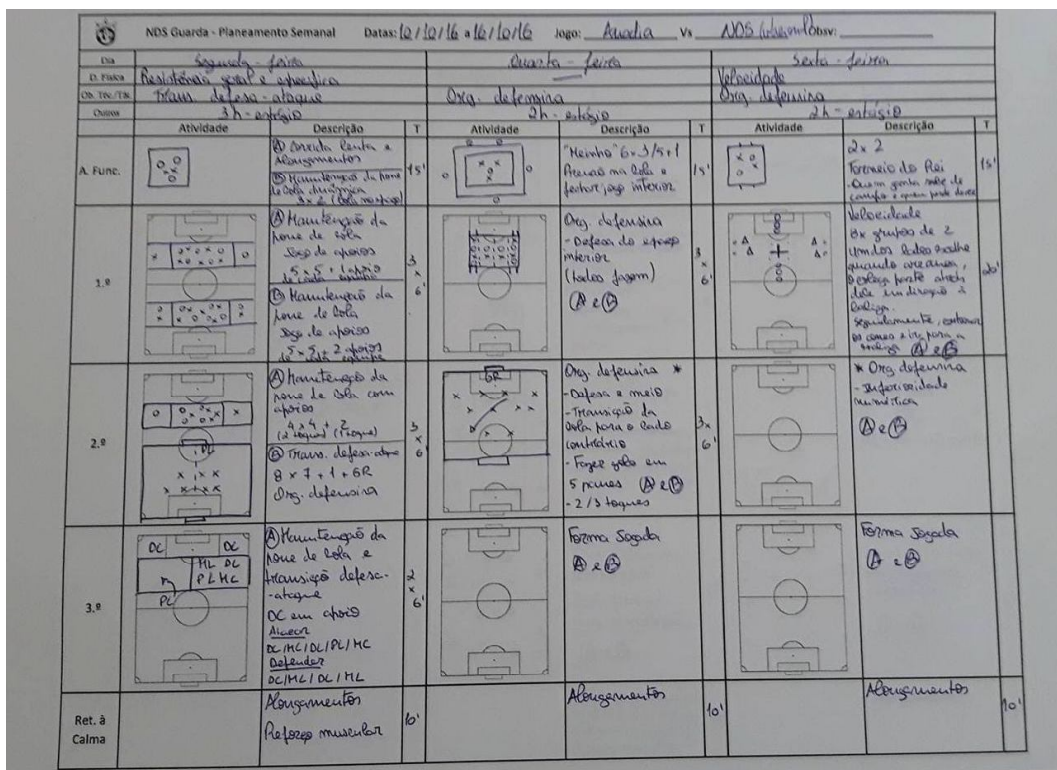 NDS Guarda - Planeamento Semanal Datas: 10/10/16 a 16/10/16 Jogo: Anadia Vs NDS Obsv:
Dia Segunda-feira Quarta-feira Sexta-feira
D. Física Resistência geral e específica — Velocidade
Ob. Téc./Tát. Trans. defesa-ataque Org. defensiva Org. defensiva
Outros 3h-estágio 2h-estágio 2h-estágio
Atividade Descrição T Atividade Descrição T Atividade Descrição T
A. Func.
Ⓐ Corrida lenta e
Alongamentos
Ⓑ Manutenção da posse
de bola dinâmica
3x2 (bola no espaço)
15'
"Meinho" 6x3/5+1
Pressão na bola e
fechar jogo interior
15'
2x2
Torneio do Rei
- Quem ganha sobe de
campo e quem perde desce
15'
1.º
Ⓐ Manutenção da
posse de bola
Jogo de apoios
5x5 + 1 apoio
de cada equipa
Ⓑ Manutenção da
posse de bola
Jogo de apoios
5x5 + 2 apoios
de cada equipa
3
x
6'
Org. defensiva
- Defesa do espaço
interior
(todos fazem)
Ⓐ e Ⓑ
3
x
6'
Velocidade
8x grupos de 2
um dos lados escolhe
quando arranca,
o colega parte atrás
dele em direção à
baliza.
Seguidamente, contornar
os cones e ir para a
baliza Ⓐ e Ⓑ
20'
2.º
GR
Ⓐ Manutenção da
posse de bola com
apoios
4x4 + 2
(2 toques) (1 toque)
Ⓑ Trans. defesa-ataque
8x7+1+GR
Org. defensiva
3
x
6'
Org. defensiva *
- Defesa e meio
- Transição da
bola para o lado
contrário
- Fazer golo em
5 passes Ⓐ e Ⓑ
- 2/3 toques
3x
6'
* Org. defensiva
- Inferioridade
numérica
Ⓐ e Ⓑ
3.º
DC DC
ML DC
PL MC
PL
Ⓐ Manutenção da
posse de bola e
transição defesa-
-ataque
DC em apoio
Atacar
DC/MC/DL/PL/MC
Defender
DC/ML/DC/ML
2
x
6'
Forma Jogada
Ⓐ e Ⓑ
Forma Jogada
Ⓐ e Ⓑ
Ret. à
Calma
Alongamentos
Reforço muscular
10'
Alongamentos
10'
Alongamentos
10'